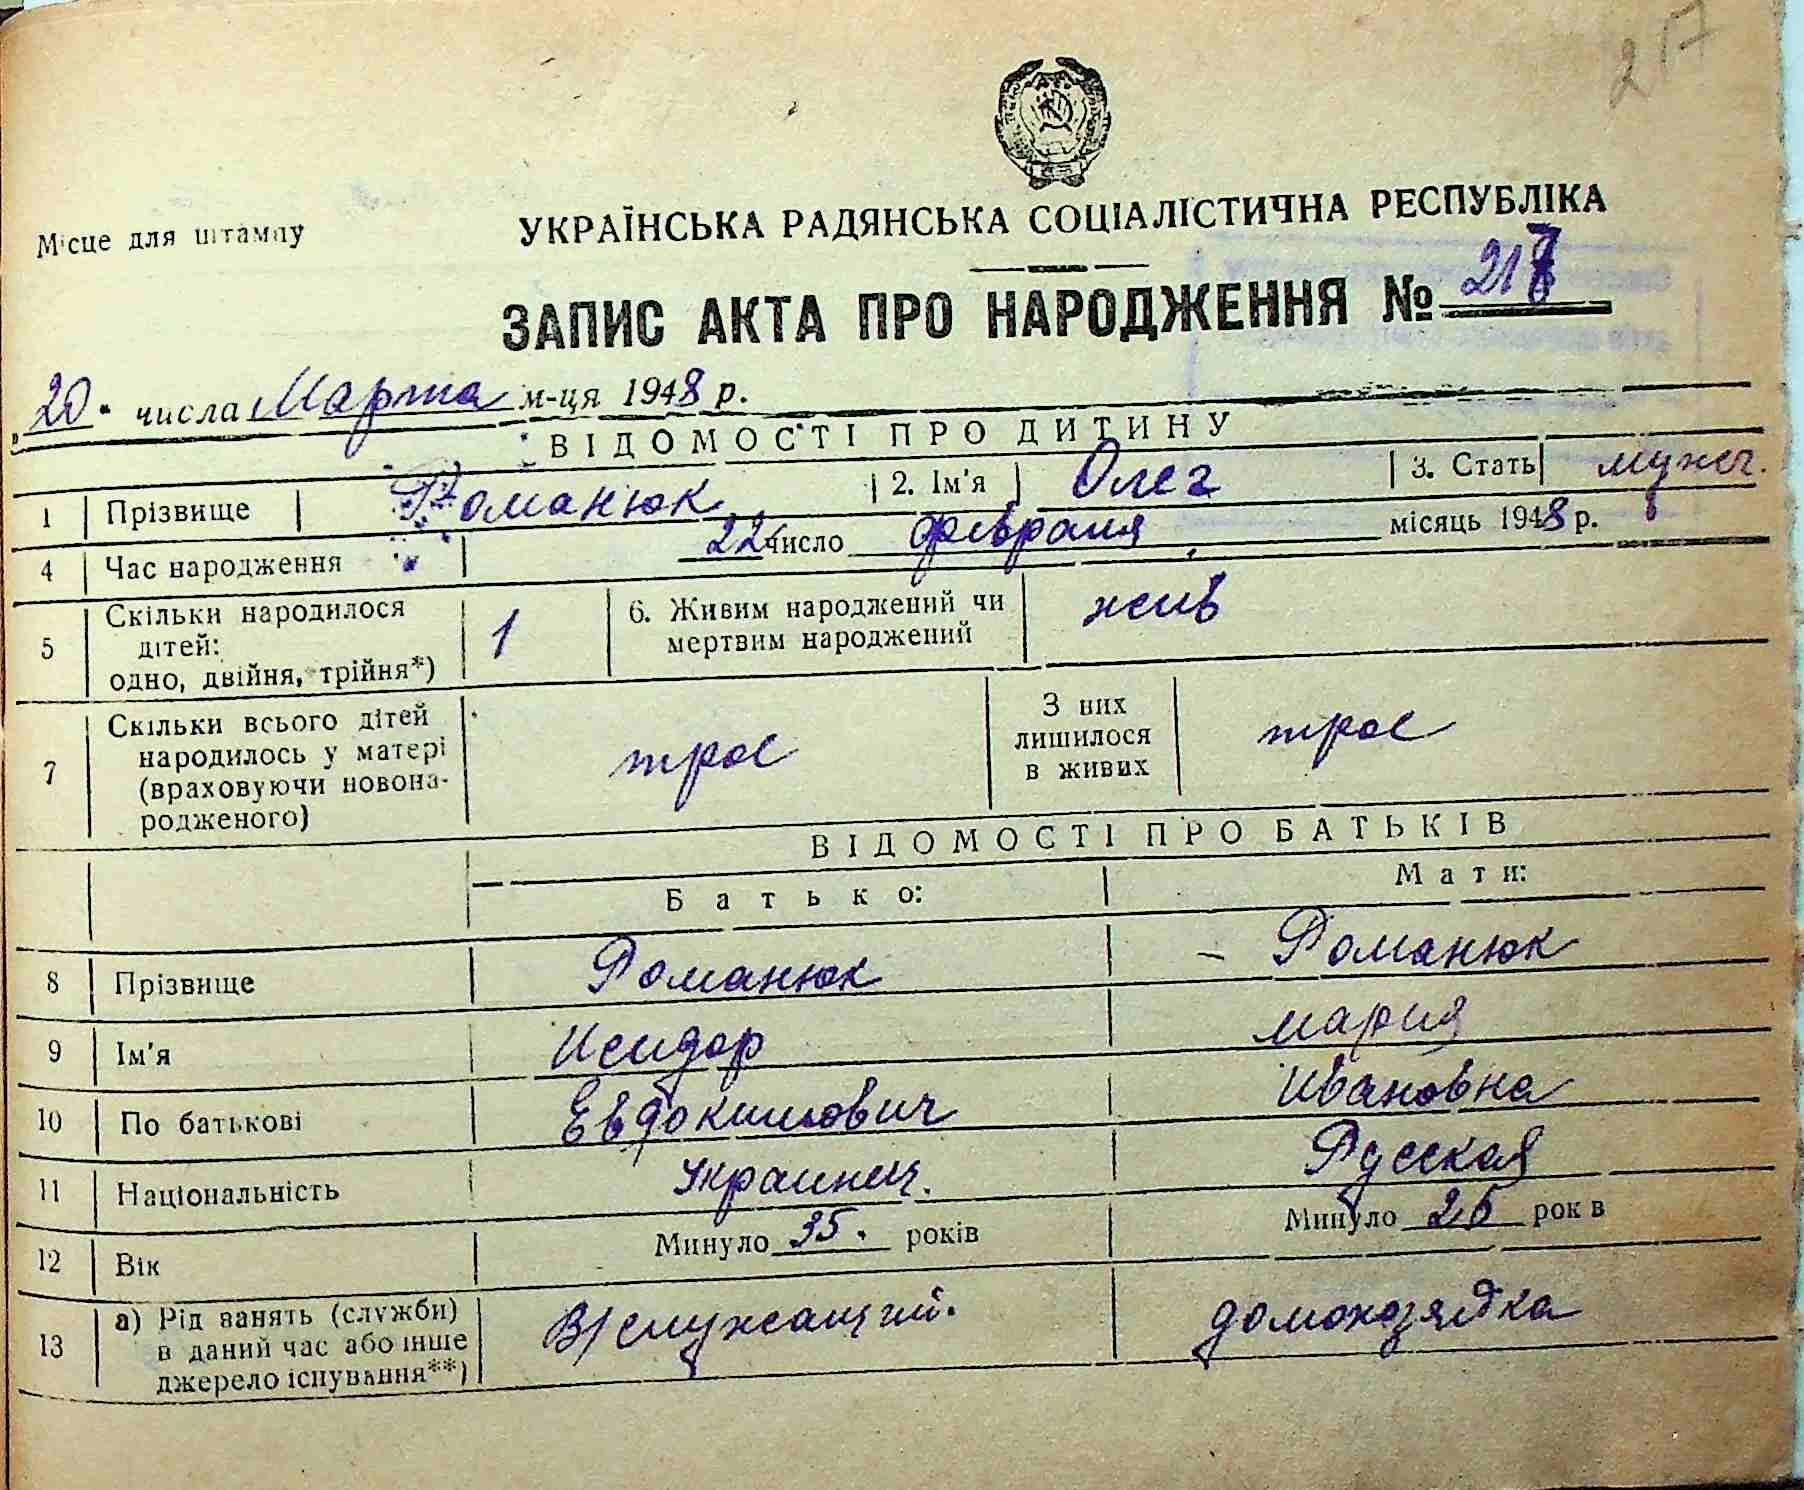 217
Місце для штампу
УКРАЇНСЬКА РАДЯНСЬКА СОЦІАЛІСТИЧНА РЕСПУБЛІКА
ЗАПИС АКТА ПРО НАРОДЖЕННЯ № 217
„20" числа Марта м-ця 1948 р.
ВІДОМОСТІ ПРО ДИТИНУ
1 Прізвище Романюк 2. Ім'я Олег 3. Стать мужч.
4 Час народження 22 число февраля місяць 1948 р.
5 Скільки народилося дітей: одно, двійня, трійня*) 1 6. Живим народжений чи мертвим народжений жив
7 Скільки всього дітей народилось у матері (враховуючи новонародженого) трое З них лишилося в живих трое
ВІДОМОСТІ ПРО БАТЬКІВ
Батько: Мати:
8 Прізвище Романюк – Романюк
9 Ім'я Исидор Мария
10 По батькові Евдокимович Ивановна
11 Національність Украинец. Русская
12 Вік Минуло 35. років Минуло 26 рок в
13 а) Рід занять (служби) в даний час або інше джерело існування**) В/служащий. домохозяйка